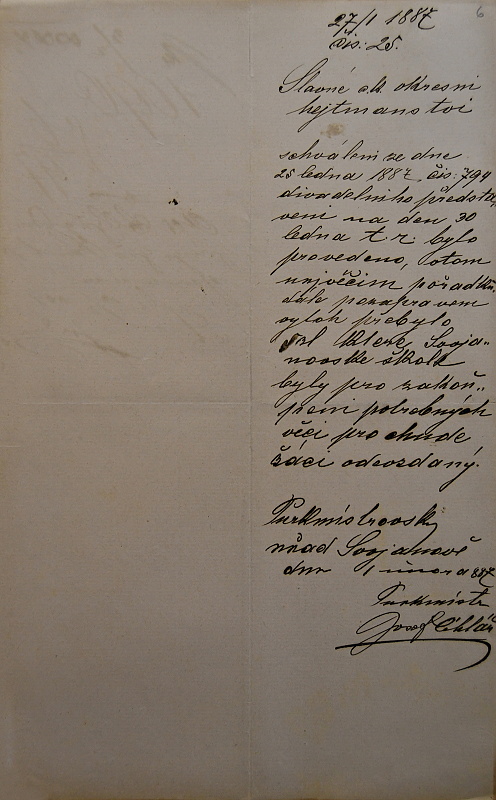 6
27/1 1887
čis: 25.
Slavné c.k. okresni
hejtmanstvi
schváleni ze dne
25 ledna 1887 čis: 794
divadelniho předsta
veni na den 30
ledna t. r. bylo
provedeno, potom
pořadku.
dale
vyloh přebylo
5zl Kleré Svoja-
novske školě
byly pro zakou-
peni potrebných
věci pro chude
žáci odevzdaný.
Purkmistrovsky
uřad Svojanově
dne 1 unora 887
Purkmistr
Josef Cihlář